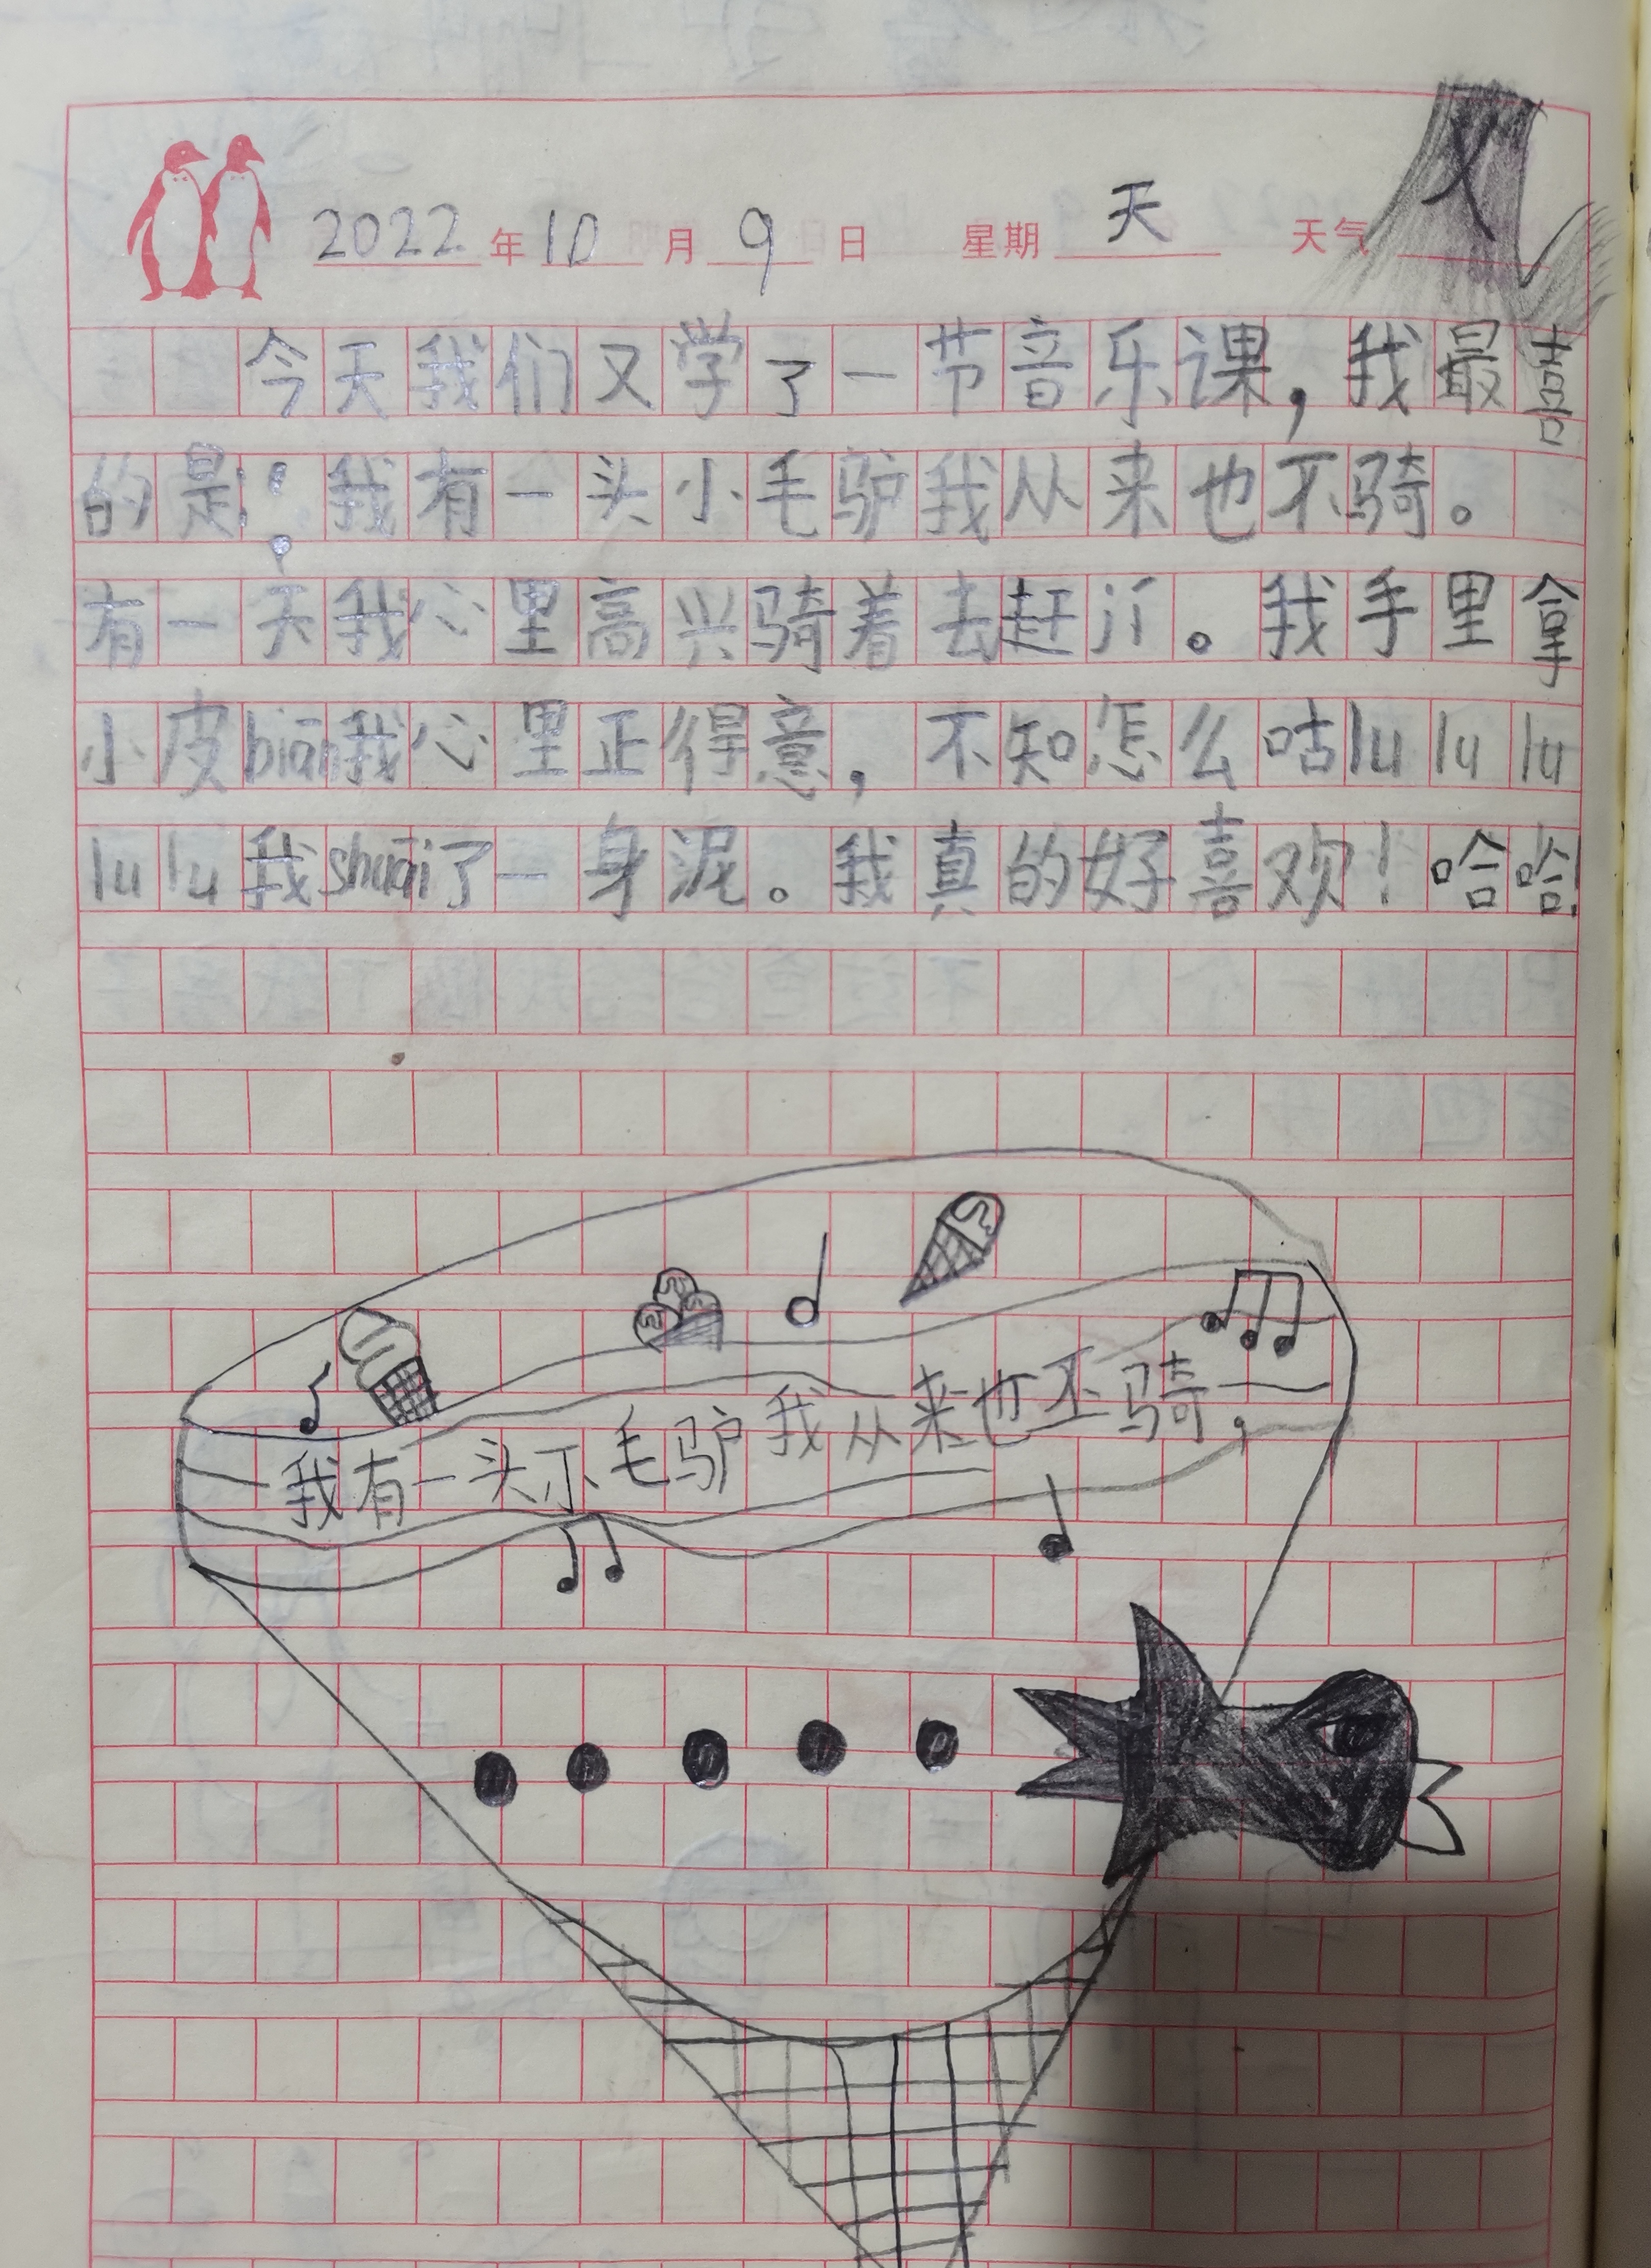 2022年10月9日 星期天 天气
今天我们又学了一节音乐课，我最喜
的是：我有一头小毛驴我从来也不骑。
有一天我心里高兴骑着去赶。我手里拿
小皮biān我心里正得意，不知怎么咕lu lu lu
lu lu 我shuāi了一身泥。我真的好喜欢！哈哈！
我有一头小毛驴我从来也不骑，